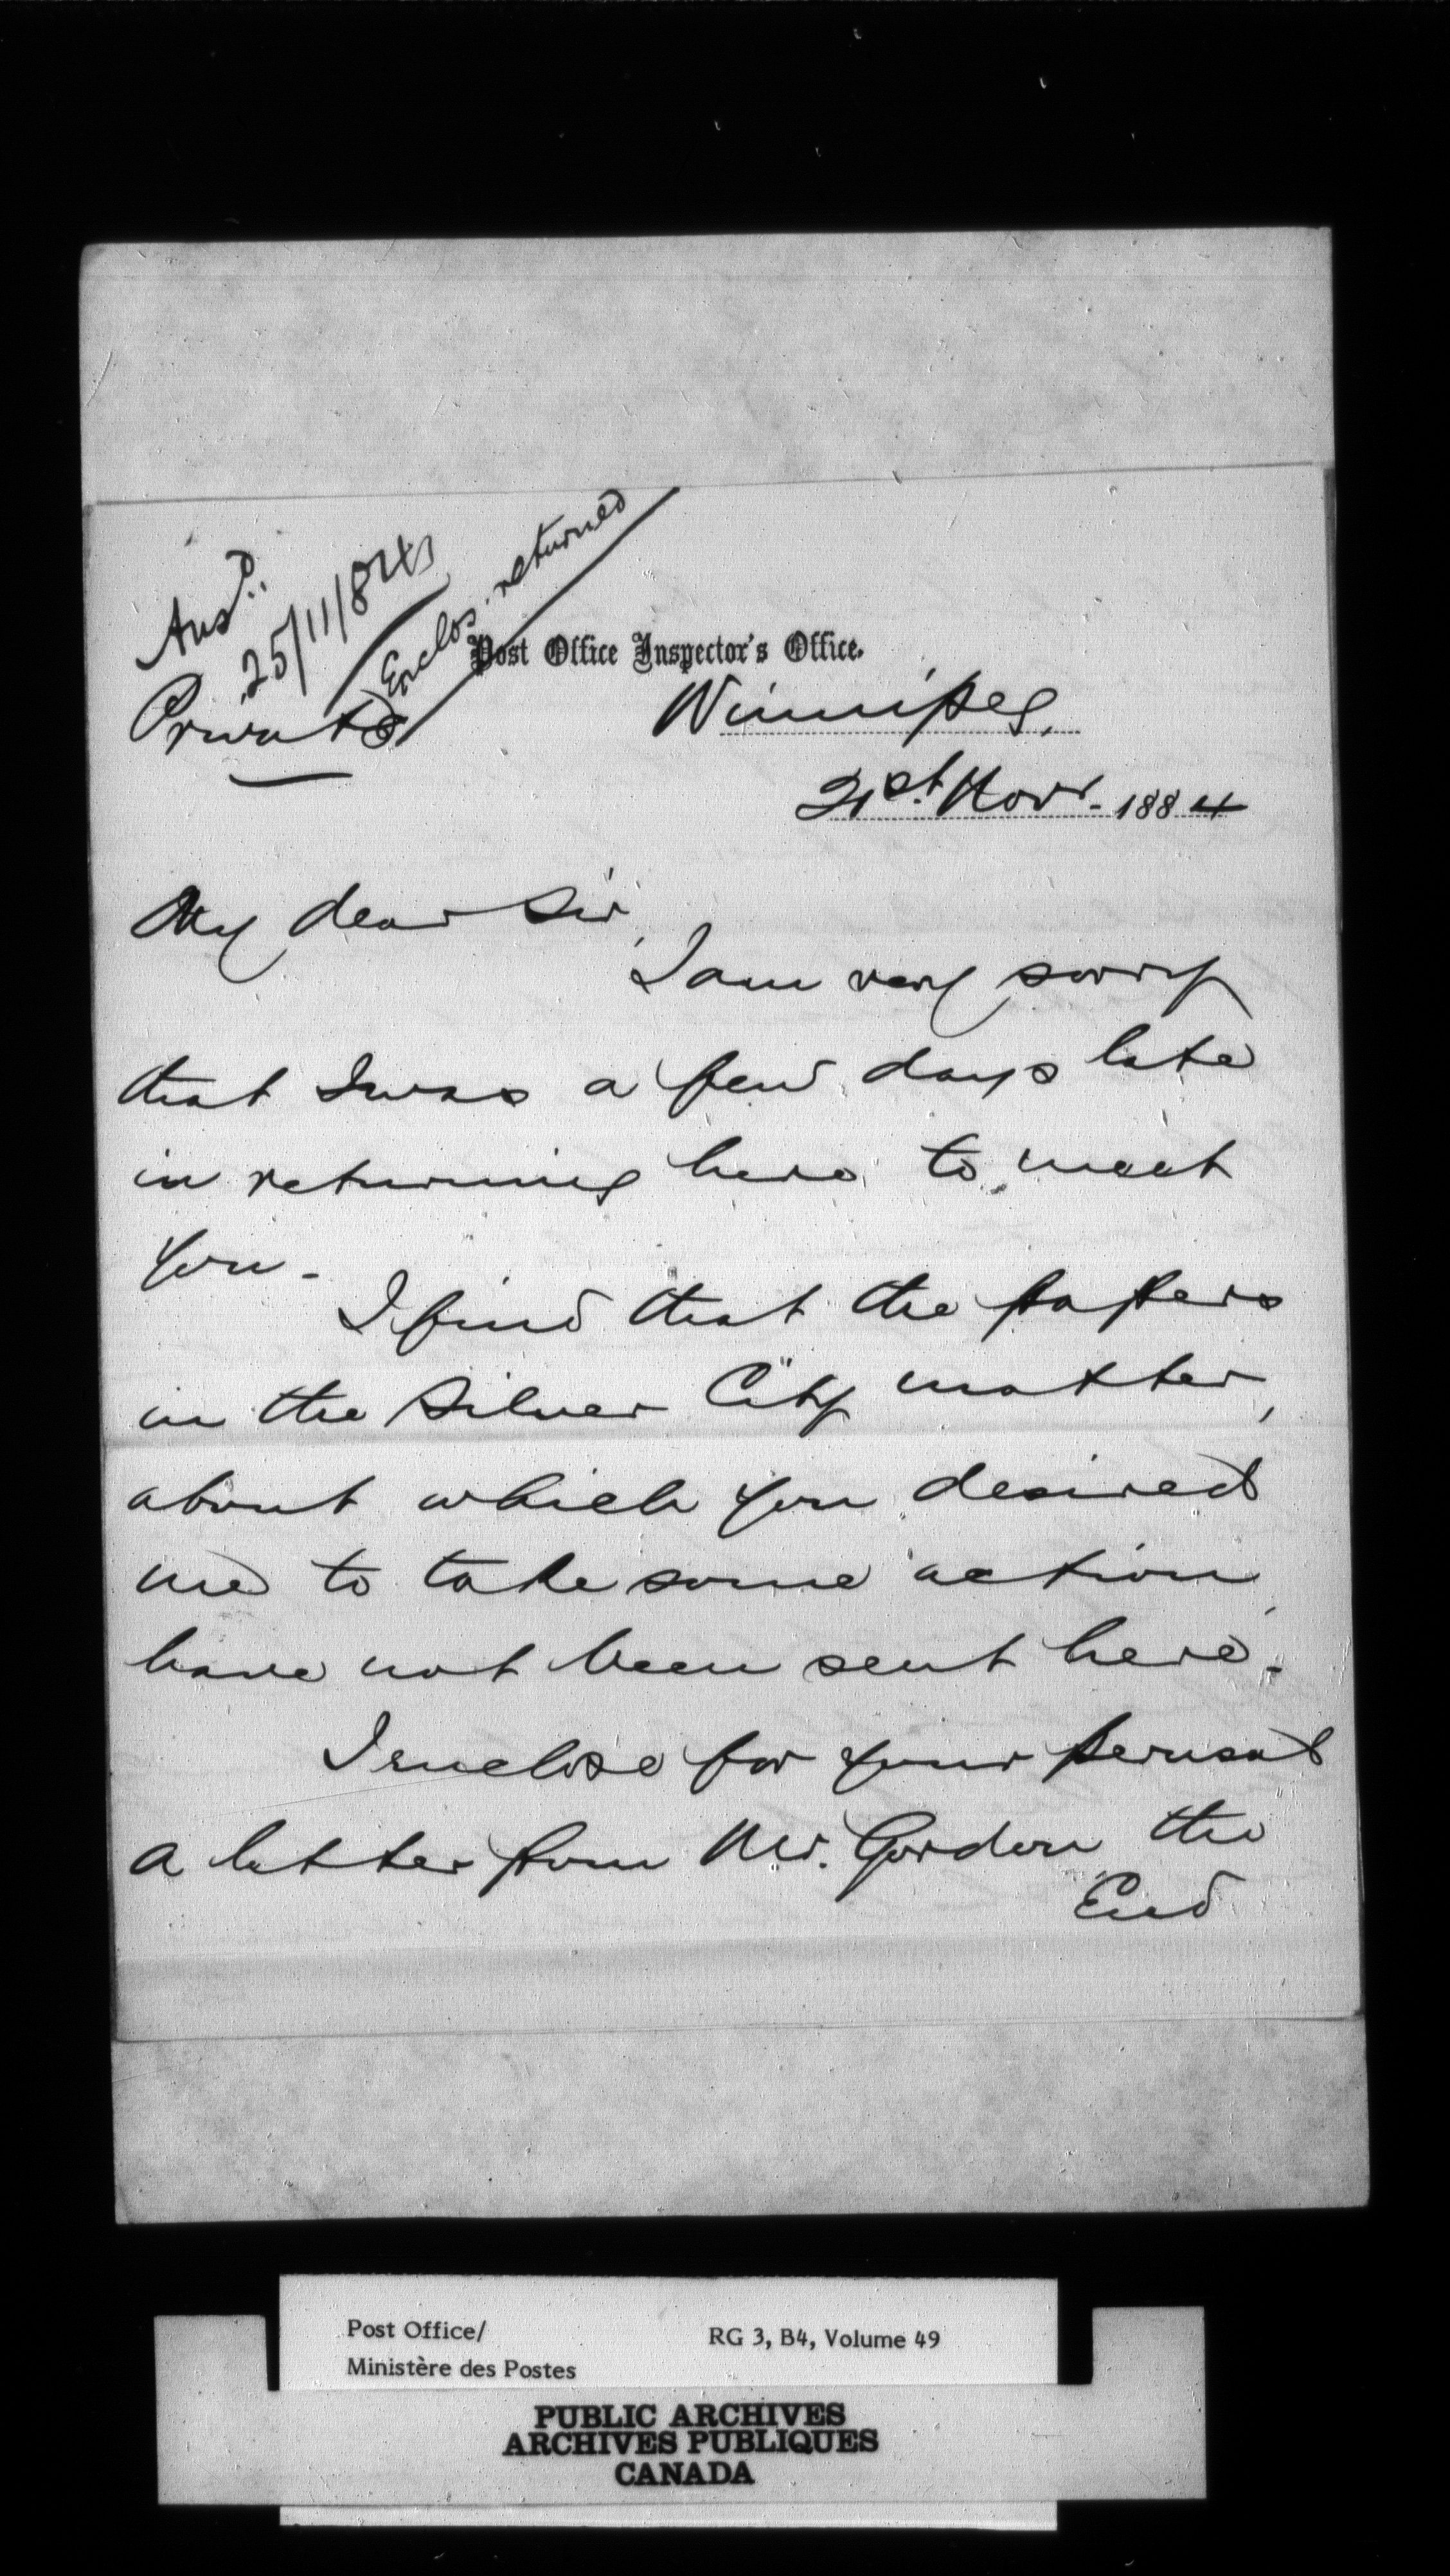 Ansd.
25/11/84
Enclos. returned
Private
Post Office Inspector's Office.
Winnipeg,
21st. Novr. 1884
My dear Sir,
I am very sorry
that I was a few days late
in returning here to meet
you -
I find that the papers
in the Silver City matter,
about which you desired
me to take some action,
have not been sent here.
I enclose for your perusal
a letter from Mr. Gordon the
Post Office/
Ministère des Postes
RG 3, B4, Volume 49
PUBLIC ARCHIVES
ARCHIVES PUBLIQUES
CANADA